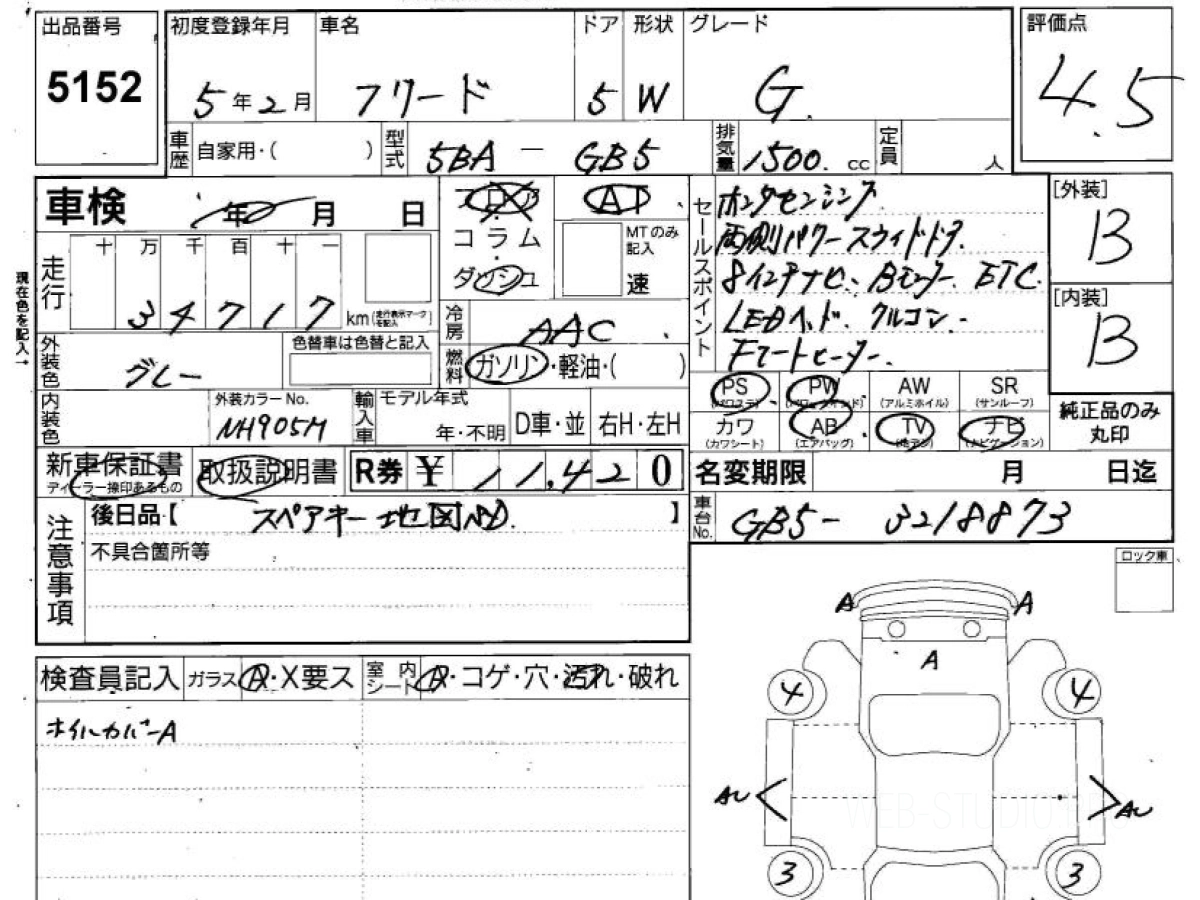 出品番号 初度登録年月 車名 ドア 形状 グレード 評価点
5152 5年2月 フリード 5 W G 4.5
車歴 自家用・( ) 型式 5BA - GB5 排気量 1500. cc 定員 人
車検 年 月 日 フロア AT セールスポイント ホンダセンシング [外装]
コラム MTのみ記入 両側パワースライドドア B
走行 十 万 千 百 十 一 ダッシュ 速 8インチナビ. Bモニター. ETC.
現在色を記入→
34717 km (走行表示マークを記入) 冷房 AAC LEDヘッド. クルコン. [内装]
外装色 グレー 色替車は色替と記入 燃料 ガソリン・軽油・( ) Fシートヒーター. B
内装色 外装カラーNo. NH905M 輸入車 モデル年式 年・不明 D車・並 右H・左H
PS (パワステ) PW (パワーウインド) AW (アルミホイル) SR (サンルーフ)
カワ (カワシート) AB (エアバッグ) TV (地デジ) ナビ (ナビゲーション) 純正品のみ丸印
新車保証書 ディーラー捺印あるもの 取扱説明書 R券 ¥ 11,420 名変期限 月 日迄
注意事項 後日品【 スペアキー 地図SD. 】 車台No. GB5- 3218873
不具合箇所等
ロック車
A A
A
検査員記入 ガラス A・X要ス 室内シート A・コゲ・穴・汚れ・破れ
4 4
ホイルカバーA
AU AU
WEB-STUDIO
3 3